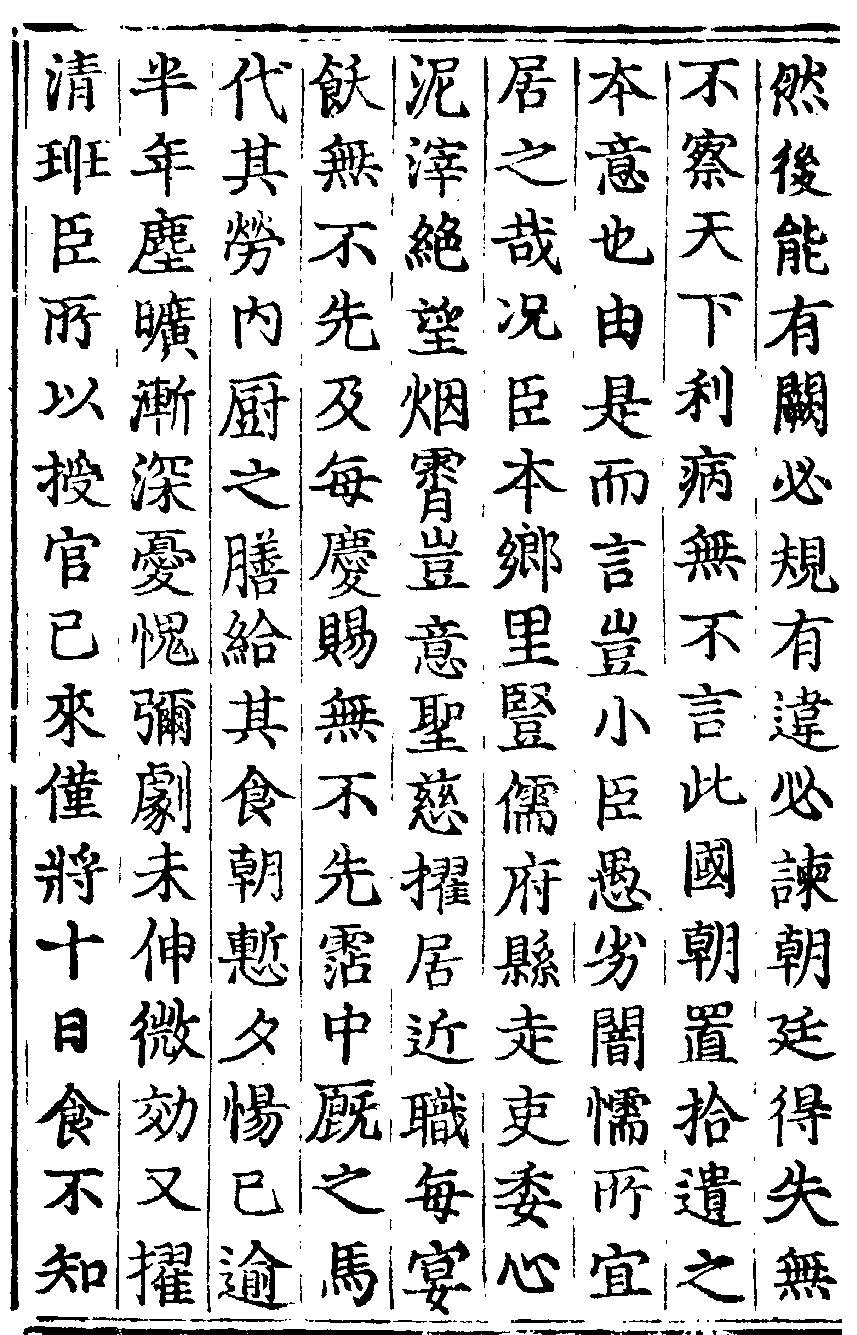 然後能有闕必規有違必諫朝廷得失無
不察天下利病無不言此國朝置拾遺之
本意也由是而言豈小臣愚劣闇懦所宜
居之哉况臣本鄉里豎儒府縣走吏委心
泥滓絶望烟霄豈意聖慈擢居近職每宴
飫無不先及每慶賜無不先霑中厩之馬
代其勞内厨之膳給其食朝慙夕惕已逾
半年塵曠漸深憂愧彌劇未伸微効又擢
清班臣所以授官已來僅將十日食不知